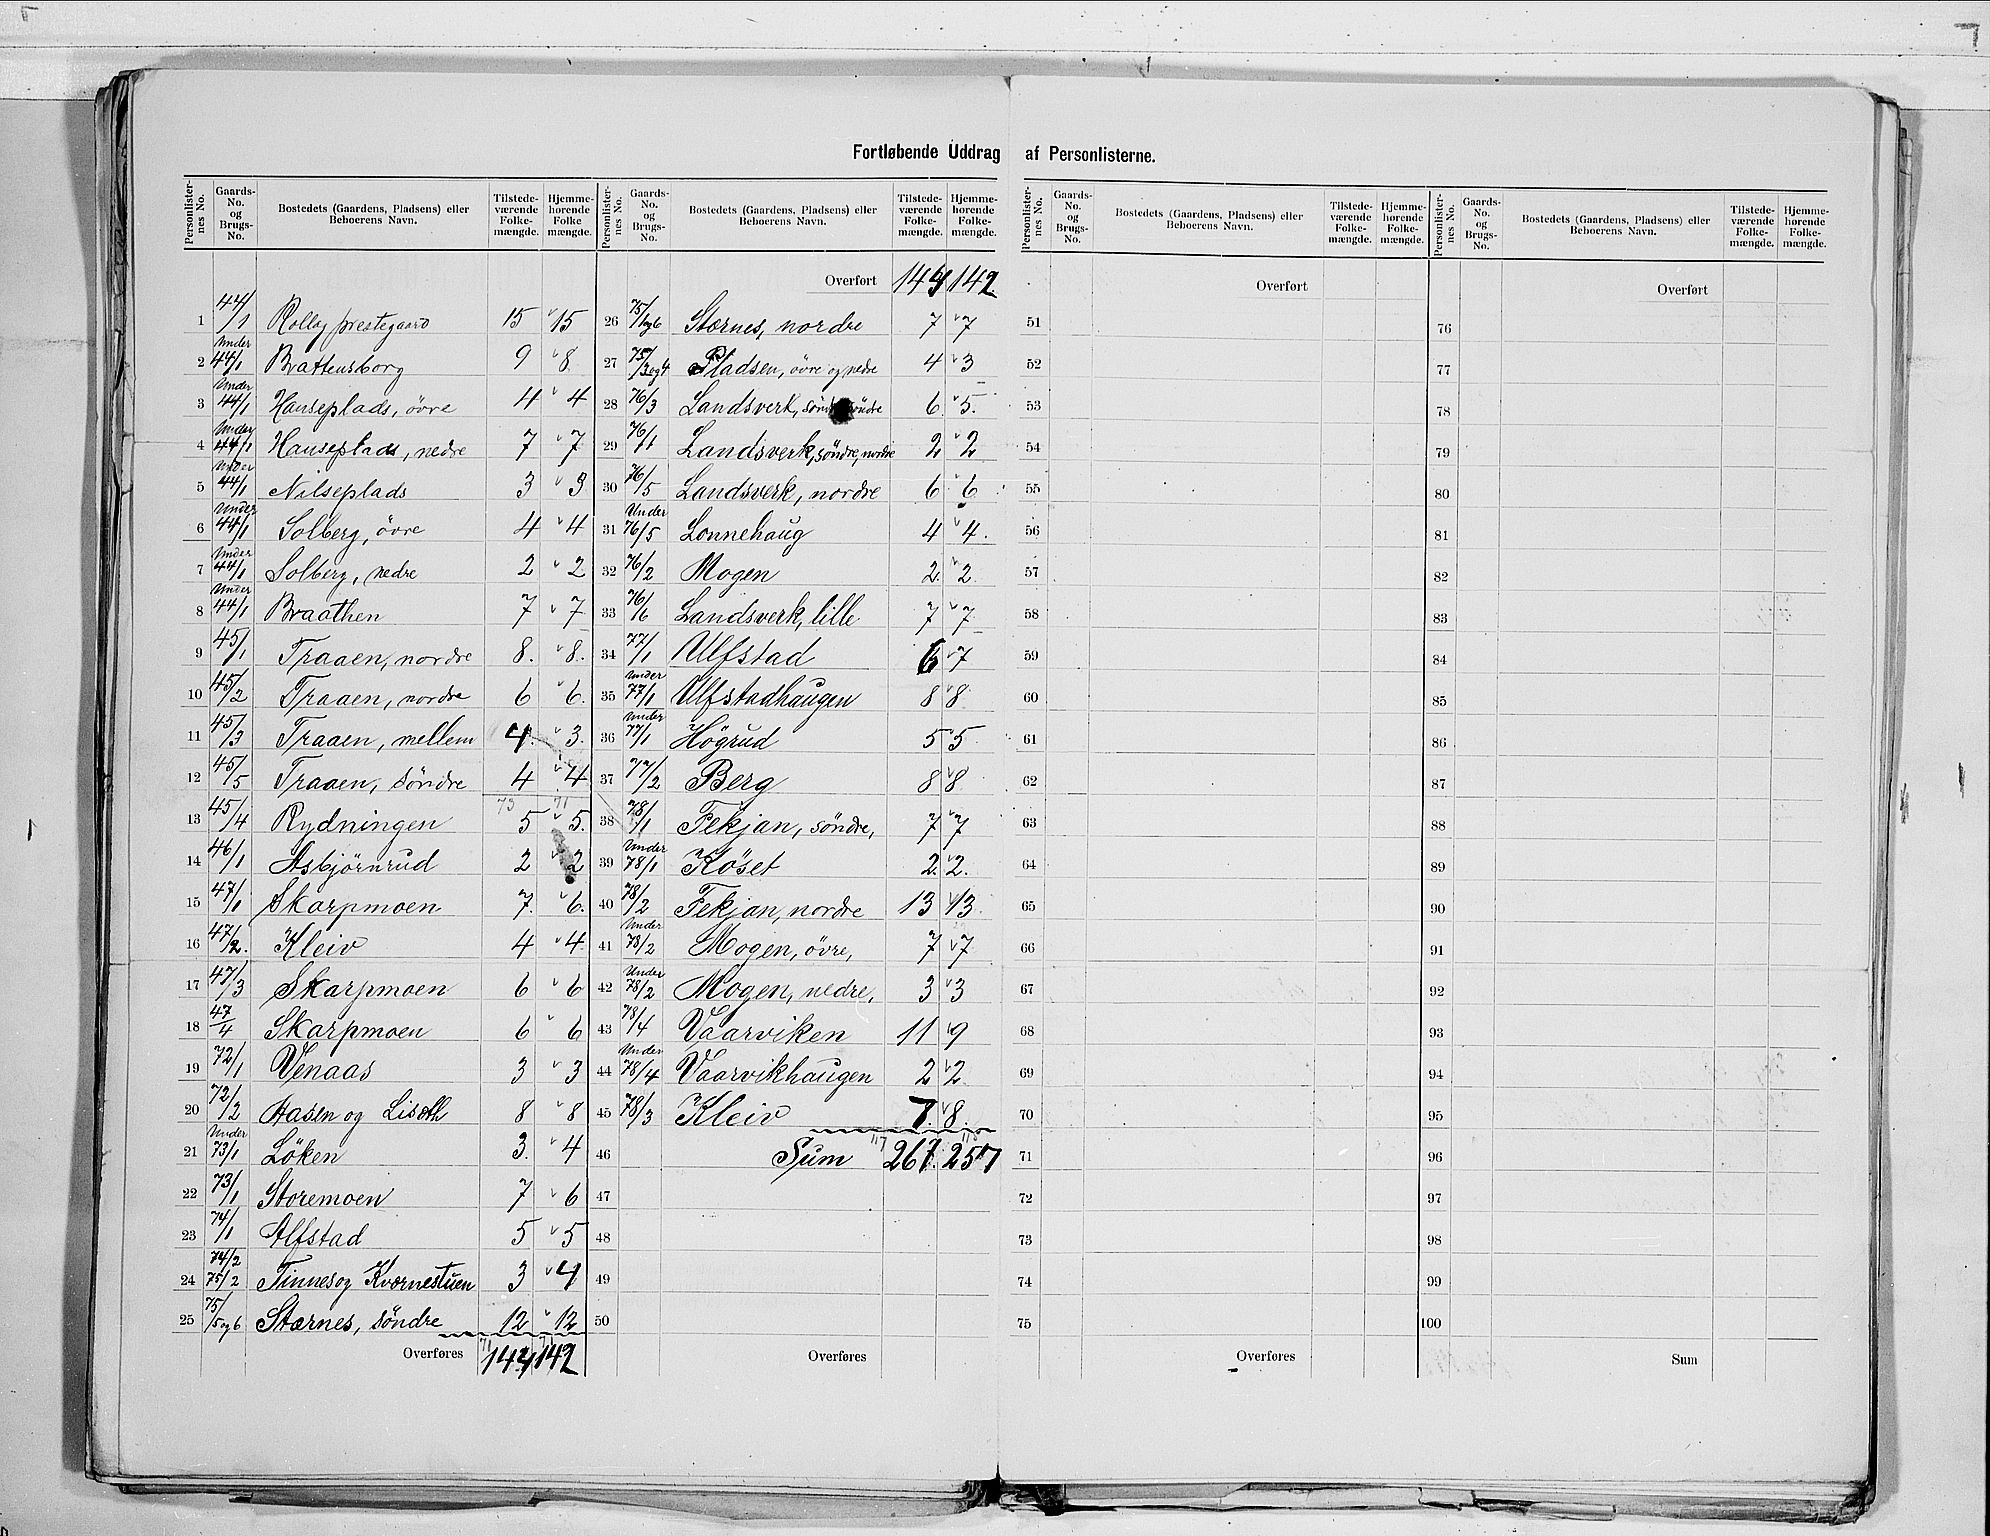 Fortløbende Uddrag af Personlisterne.
Personlister-nes No. | Gaards-No. og Brugs-No. | Bostedets (Gaardens, Pladsens) eller Beboerens Navn. | Tilstede-værende Folke-mængde. | Hjemme-hørende Folke mængde.
1 44/1 Rollag prestegaard 15 15
2 Under 44/1 Brattensborg 9 8
3 Under 44/1 Hanseplads, övre 4 4
4 Under 44/1 Hanseplads, nedre 7 7
5 Under 44/1 Nilseplads 3 3
6 Under 44/1 Solberg, övre 4 4
7 Under 44/1 Solberg, nedre 2 2
8 Under 44/1 Braathen 7 7
9 45/1 Traaen, nordre 8. 8.
10 45/2 Traaen, nordre 6 6.
11 45/3 Traaen, mellem 4. 3.
12 45/5 Traaen, söndre 4 4
73 71
13 45/4 Rydningen 5 5.
14 46/1 Asbjørnrud 2 2
15 47/1 Skarpmoen 7. 6.
16 47/2. Kleiv 4 4
17 47/3 Skarpmoen 6 6
18 47/4 Skarpmoen 6 6
19 72/1 Venaas 3 3
20 72/2 Aasen og Liseth 8 8
21 Under 73/1 Löken 3. 4
22 73/1 Storemoen 7 6
23 74/1 Alfstad 5 5
24 74/2 75/2 Tinnes og Kværnestuen 3 4
25 75/5 og 6 Stærnes, söndre 12 12
Overføres 144 142
Personlister-nes No. | Gaards-No. og Brugs-No. | Bostedets (Gaardens, Pladsens) eller Beboerens Navn. | Tilstede-værende Folke-mængde. | Hjemme-hørende Folke-mængde.
Overført 144 142
26 75/1 og 6 Stærnes, nordre 7 7
27 75/3 og 4 Pladsen, övre og nedre 4 3
28 76/3 Landsverk, söndre 6. 5.
29 76/1 Landsverk, söndre, nordre 2 2
30 76/5 Landsverk, nordre 6 6
31 Under 76/5 Lonnehaug 4 4.
32 76/2 Mogen 2. 2.
33 76/6 Landsverk, lille 7 7
34 77/1 Ulfstad 6 7
35 Under 77/1 Ulfstadhaugen 8 8
36 Under 77/1 Högrud 5 5
37 77/2 Berg 8 8
38 78/1 Fekjan, söndre, 7 7
39 Under 78/1 Köset 2. 2.
40 78/2 Fekjan, nordre 13 13.
41 Under 78/2 Mogen, övre, 7 7
42 Under 78/2 Mogen, nedre, 3 3
43 78/4 Vaarviken 11 9
44 Under 78/4 Vaarvikhaugen 2 2.
45 78/3 Kleiv 7. 8.
46 Sum 261. 257
47
48
49
50
Overføres
Personlister-nes No. | Gaards-No. og Brugs-No. | Bostedets (Gaardens, Pladsens) eller Beboerens Navn. | Tilstede-værende Folke-mængde. | Hjemme-hørende Folke-mængde.
Overført
51
52
53
54
55
56
57
58
59
60
61
62
63
64
65
66
67
68
69
70
71
72
73
74
75
Overføres
Personlister-nes No. | Gaards-No. og Brugs-No. | Bostedets (Gaardens, Pladsens) eller Beboerens Navn. | Tilstede-værende Folke-mængde. | Hjemme-hørende Folke-mængde.
Overført
76
77
78
79
80
81
82
83
84
85
86
87
88
89
90
91
92
93
94
95
96
97
98
99
100
Sum